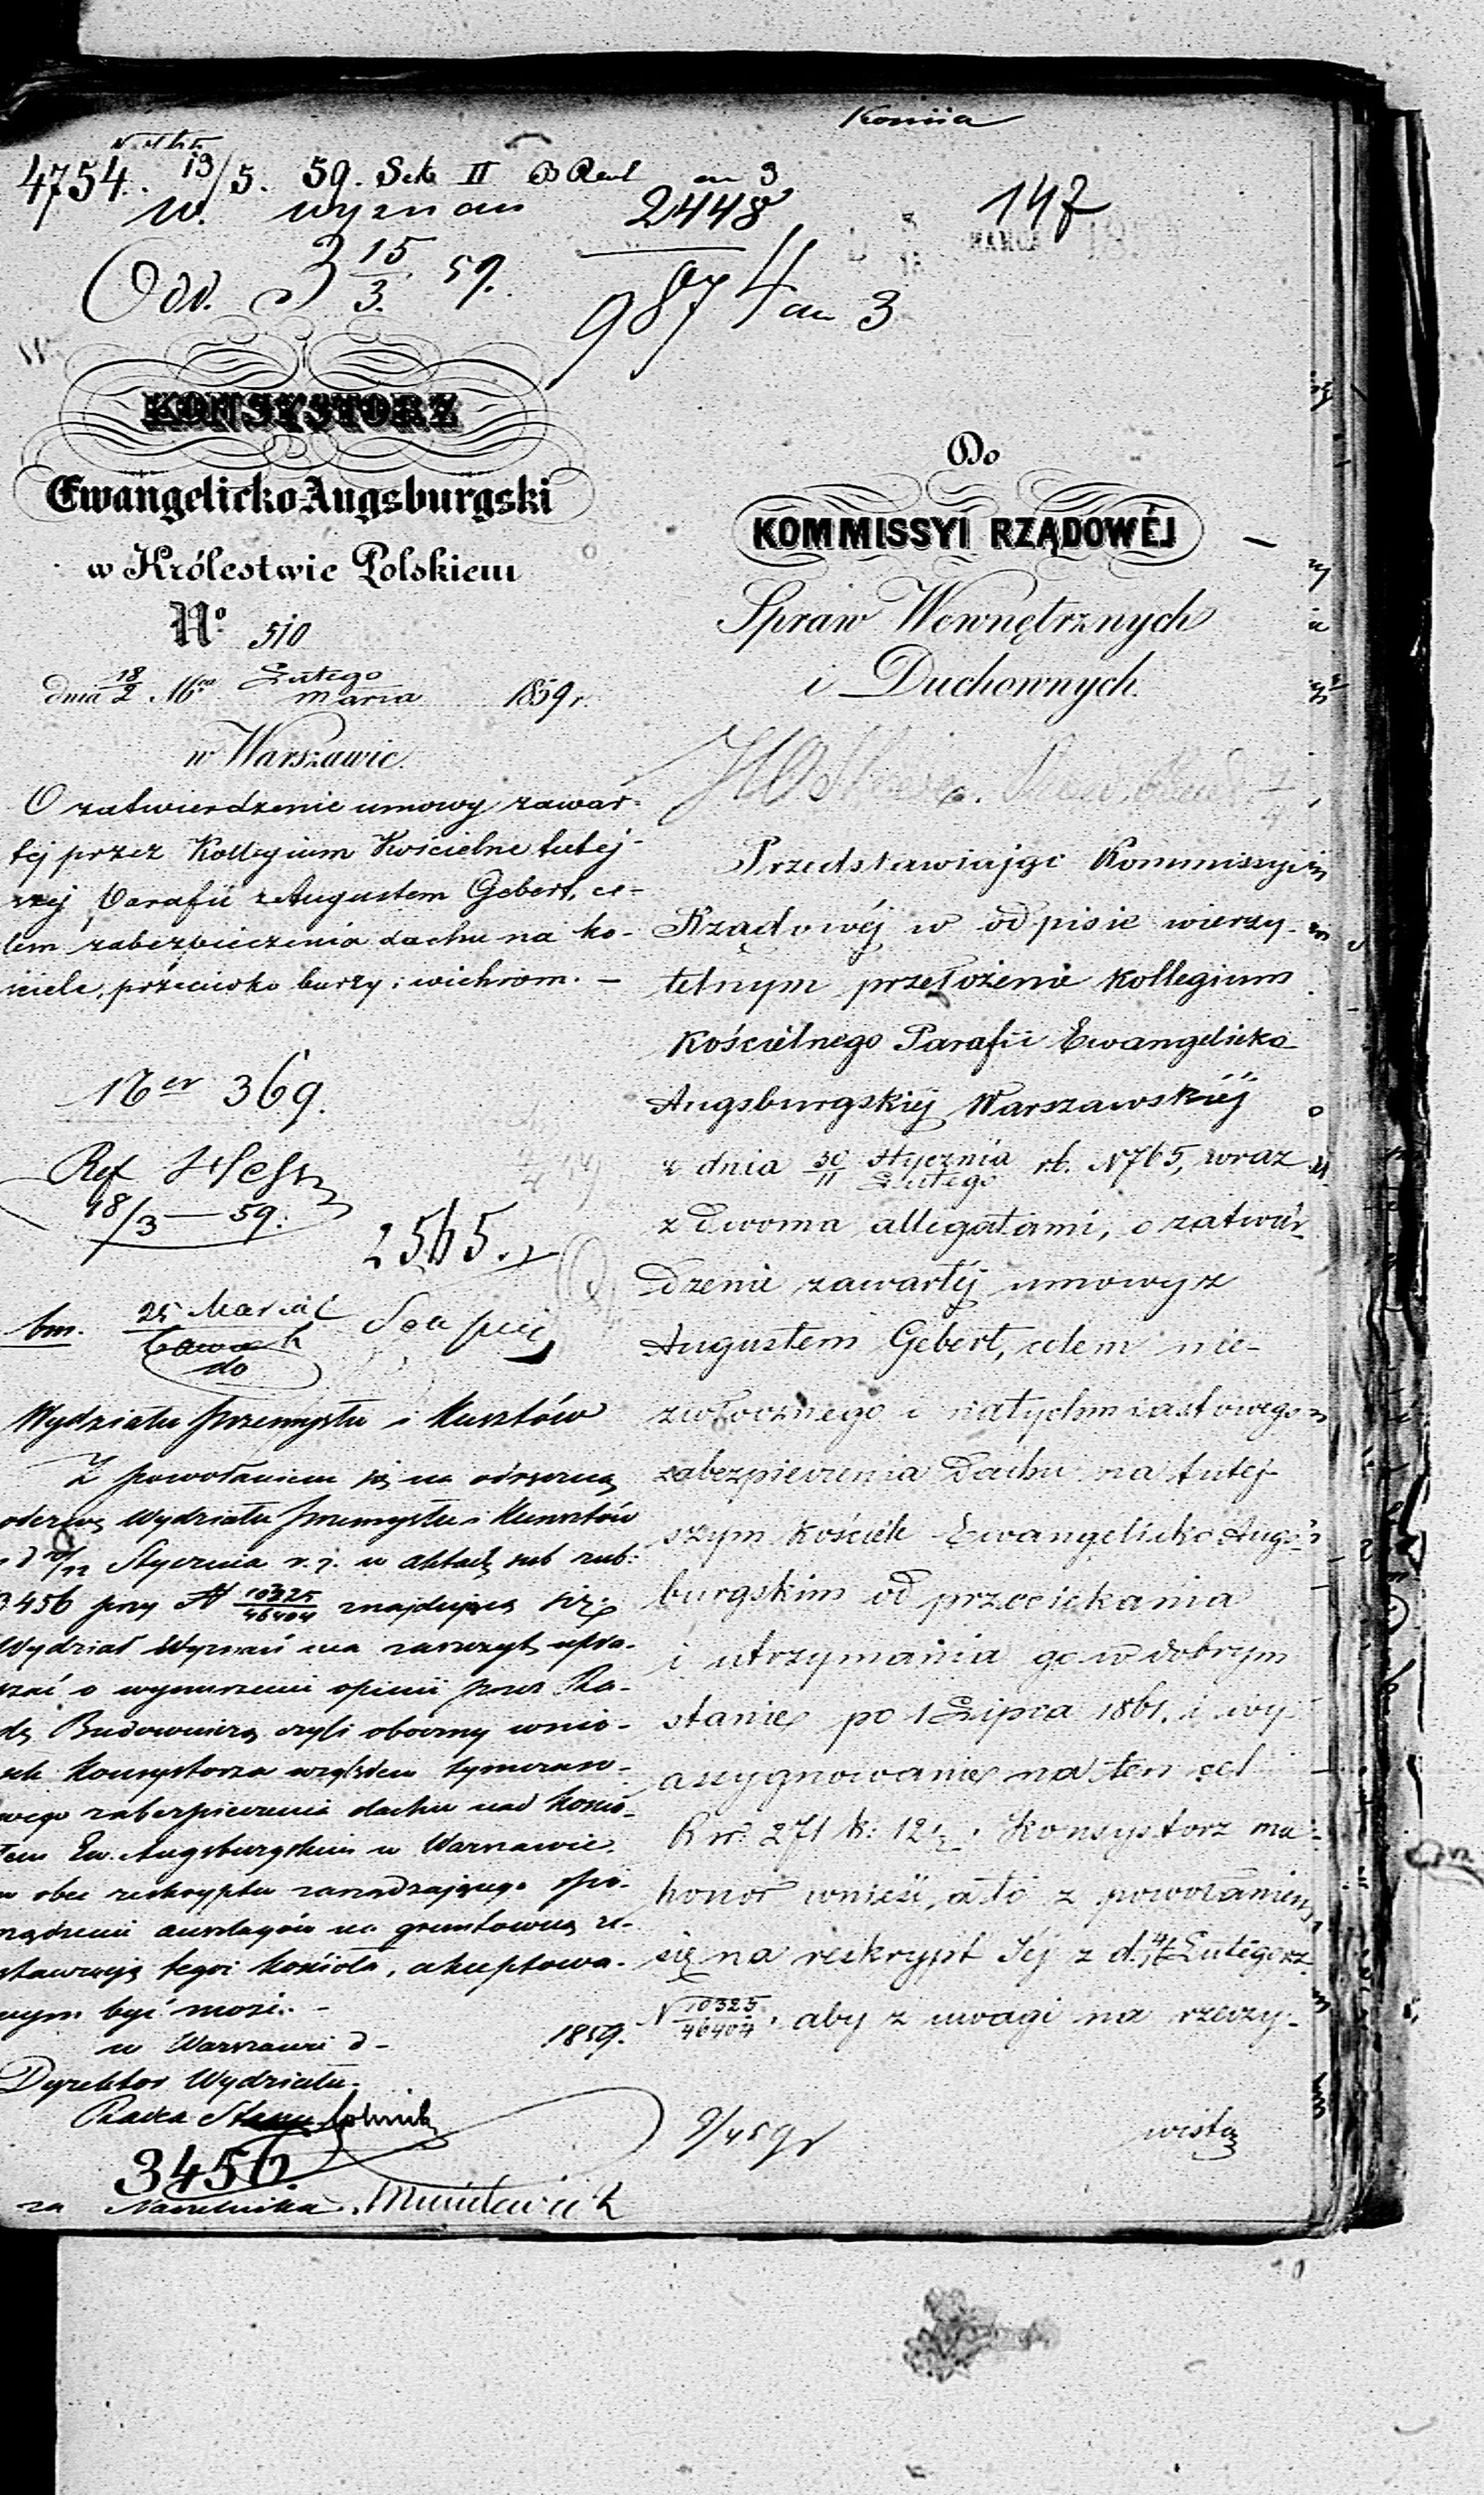 4754. 13/5. 59. Sek II
w. wyznań 2448
147
MARCA
Odd. 3 15/3. 59.
9874 an 3
KONSYSTORZ
Ewangelicko Augsburgski
w Królestwie Polskiem
No. 510
dnia 18/2 Mca Lutego/Marca 1859 r.
w Warszawie.
O zatwierdzenie umowy zawar-
tej przez Kollegium Kościelne tutej-
szej Parafii z Augustem Gebert, ce-
lem zabezpieczenia dachu na ko-
ściele, przeciwko burzy i wichrom. –
Ner 369.
Ref Hess
18/3 – 59.
2565.
bm. 25 Marca
do
Wydziału Przemysłu i Kunsztów
Z powołaniem się na odręczną
odezwę Wydziału Przemysłu i Kunsztów
Stycznia r. z. w aktach sub rub:
3456 przy N 10325/46404 znajdującą się
Wydział Wyznań ma zaszczyt upra-
szać o wynurzenie opinii przez Ra-
dę Budowniczą czyli oboczny wnio-
sek Konsystorza względem tymczaso-
wego zabezpieczenia dachu nad Kościo-
łem Ew. Augsburgskim w Warszawie.
w obec reskryptu zarządzającego spo-
rządzenie anszlagów na gruntowną re-
stauracyję tegoż Kościoła, akceptowa-
nym być może. –
w Warszawie d – 1859.
Dyrektor Wydziału.
Radca Stanu
3456.
za Naczelnika
Do
KOMMISSYI RZĄDOWÉJ
Spraw Wewnętrznych
i Duchownych.
Przedstawiając Kommissyi
Rządowéj w odpisie wierzy-
telnym przełożenie Kollegium
Kościelnego Parafii Ewangelicko
Augsburgskiéj Warszawskiéj
z dnia 30/11 Stycznia/Lutego rb. N 765, wraz
z dwoma allegatami, o zatwier-
dzenie zawartéj umowy z
Augustem Gebert, celem nie-
zwłocznego i natychmiastowego
zabezpieczenia dachu na tutej-
szym Kościele Ewangelicko Augs-
burgskim od przeciekania
i utrzymania go w dobrym
stanie po 1 Lipca 1861. i wy
assygnowanie na ten cel
Rsr. 271 k: 12½. Konsystorz ma
honor wnieść, a to z powołaniem
się na reskrypt Jéj z d. 4/16 Lutego rz
N 10325/46404, aby z uwagi na rzeczy-
wistą